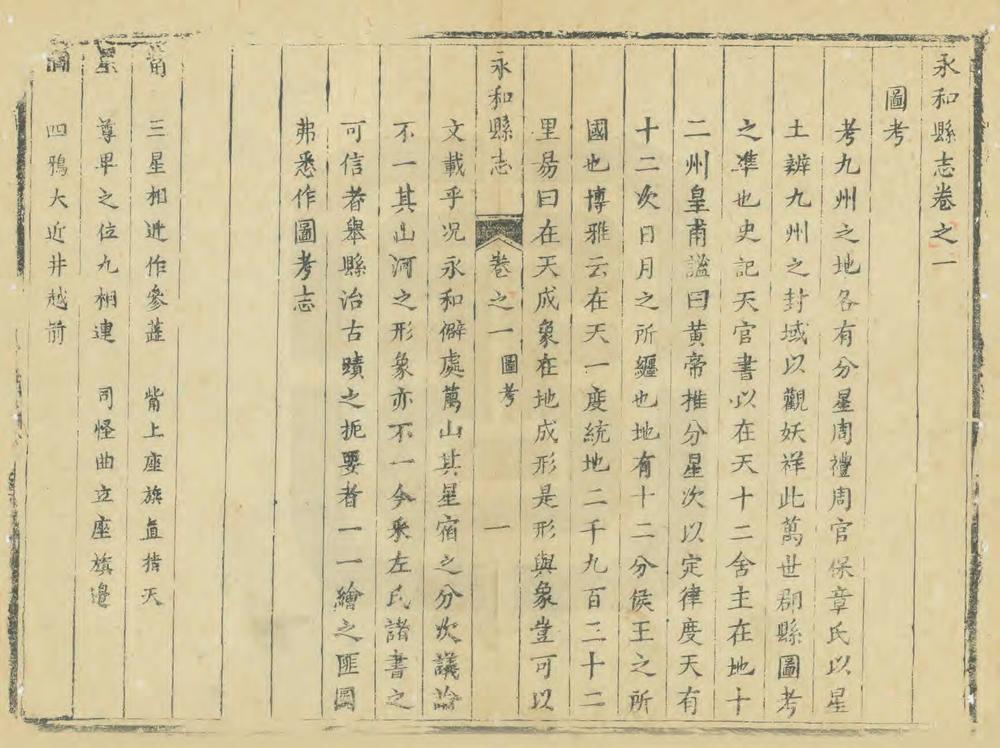 永和縣志卷之一
圖考
考九州之地各有分星周禮周官保章氏以星
土辨九州之封域以觀妖祥此萬世郡縣圖考
之準也史記天官書以在天十二舍主在地十
二州皇甫謐曰黃帝推分星次以定律度天有
十二次日月之所纏也地有十二分侯王之所
國也博雅云在天一度統地二千九百三十二
里易曰在天成象在地成形是形與象豈可以
永和縣志 卷之一 圖考 一
文載乎况永和僻處萬山其星宿之分次議論
不一其山河之形象亦不一今采左氏諸書之
可信者舉縣治古蹟之扼要者一一繪之匪圖
弗悉作圖考志
觜 三星相近作參蕋 觜上座旗直指天
星 尊卑之位九相連 司怪曲立座旗邊
圖 四鴉大近井越前